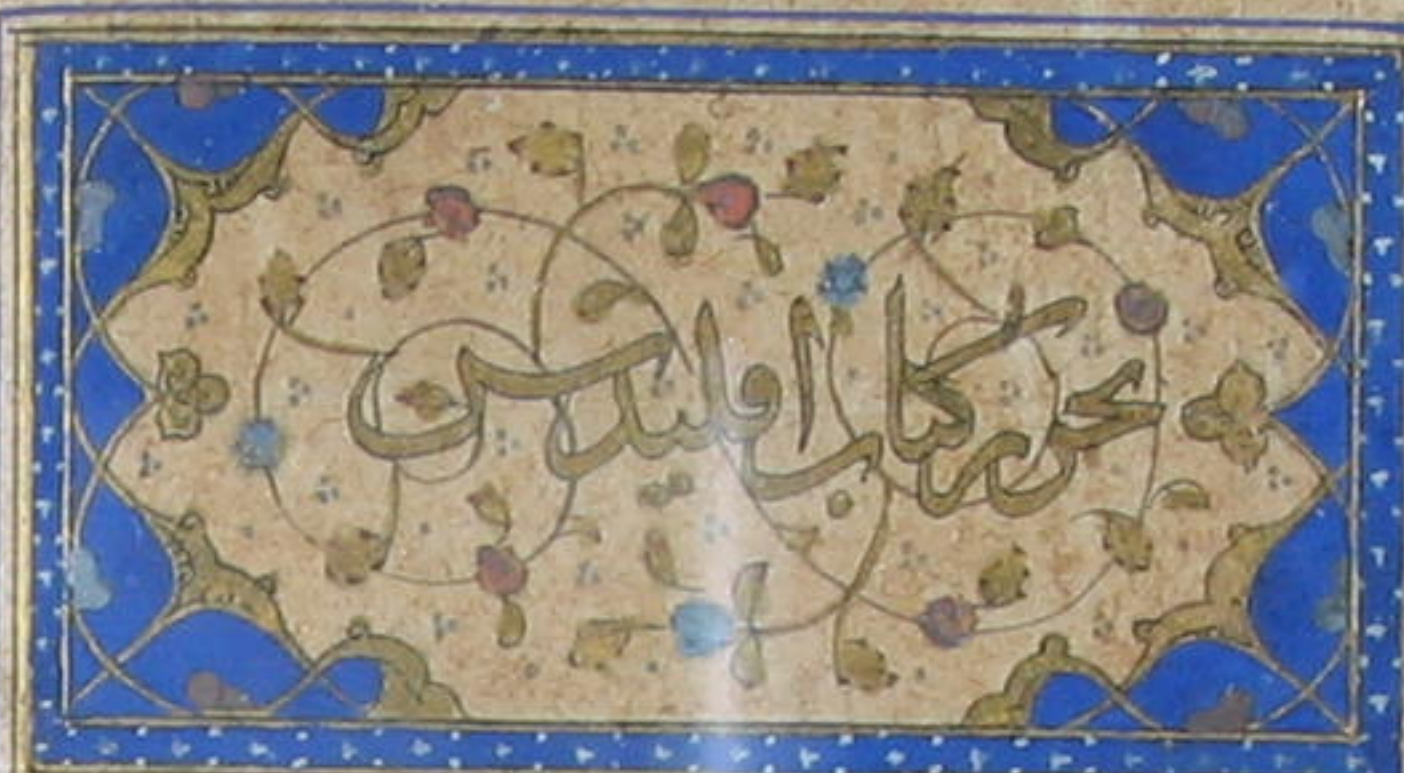 تحرير كتاب اقليدس